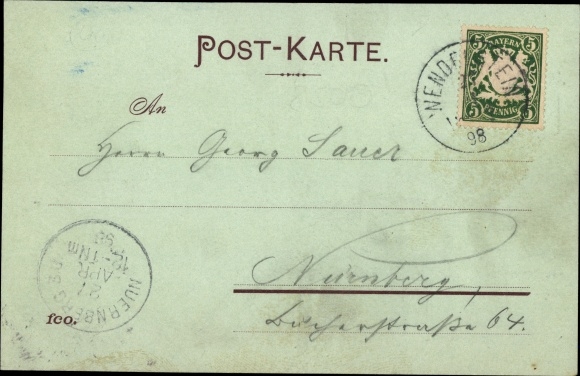 POST-KARTE.
5 BAYERN 5
5 PFENNIG 5
98
An
Herrn Georg Sauer
Nürnberg,
Bucherstraße 64.
NUERNBERG
21
APR
98
fco.